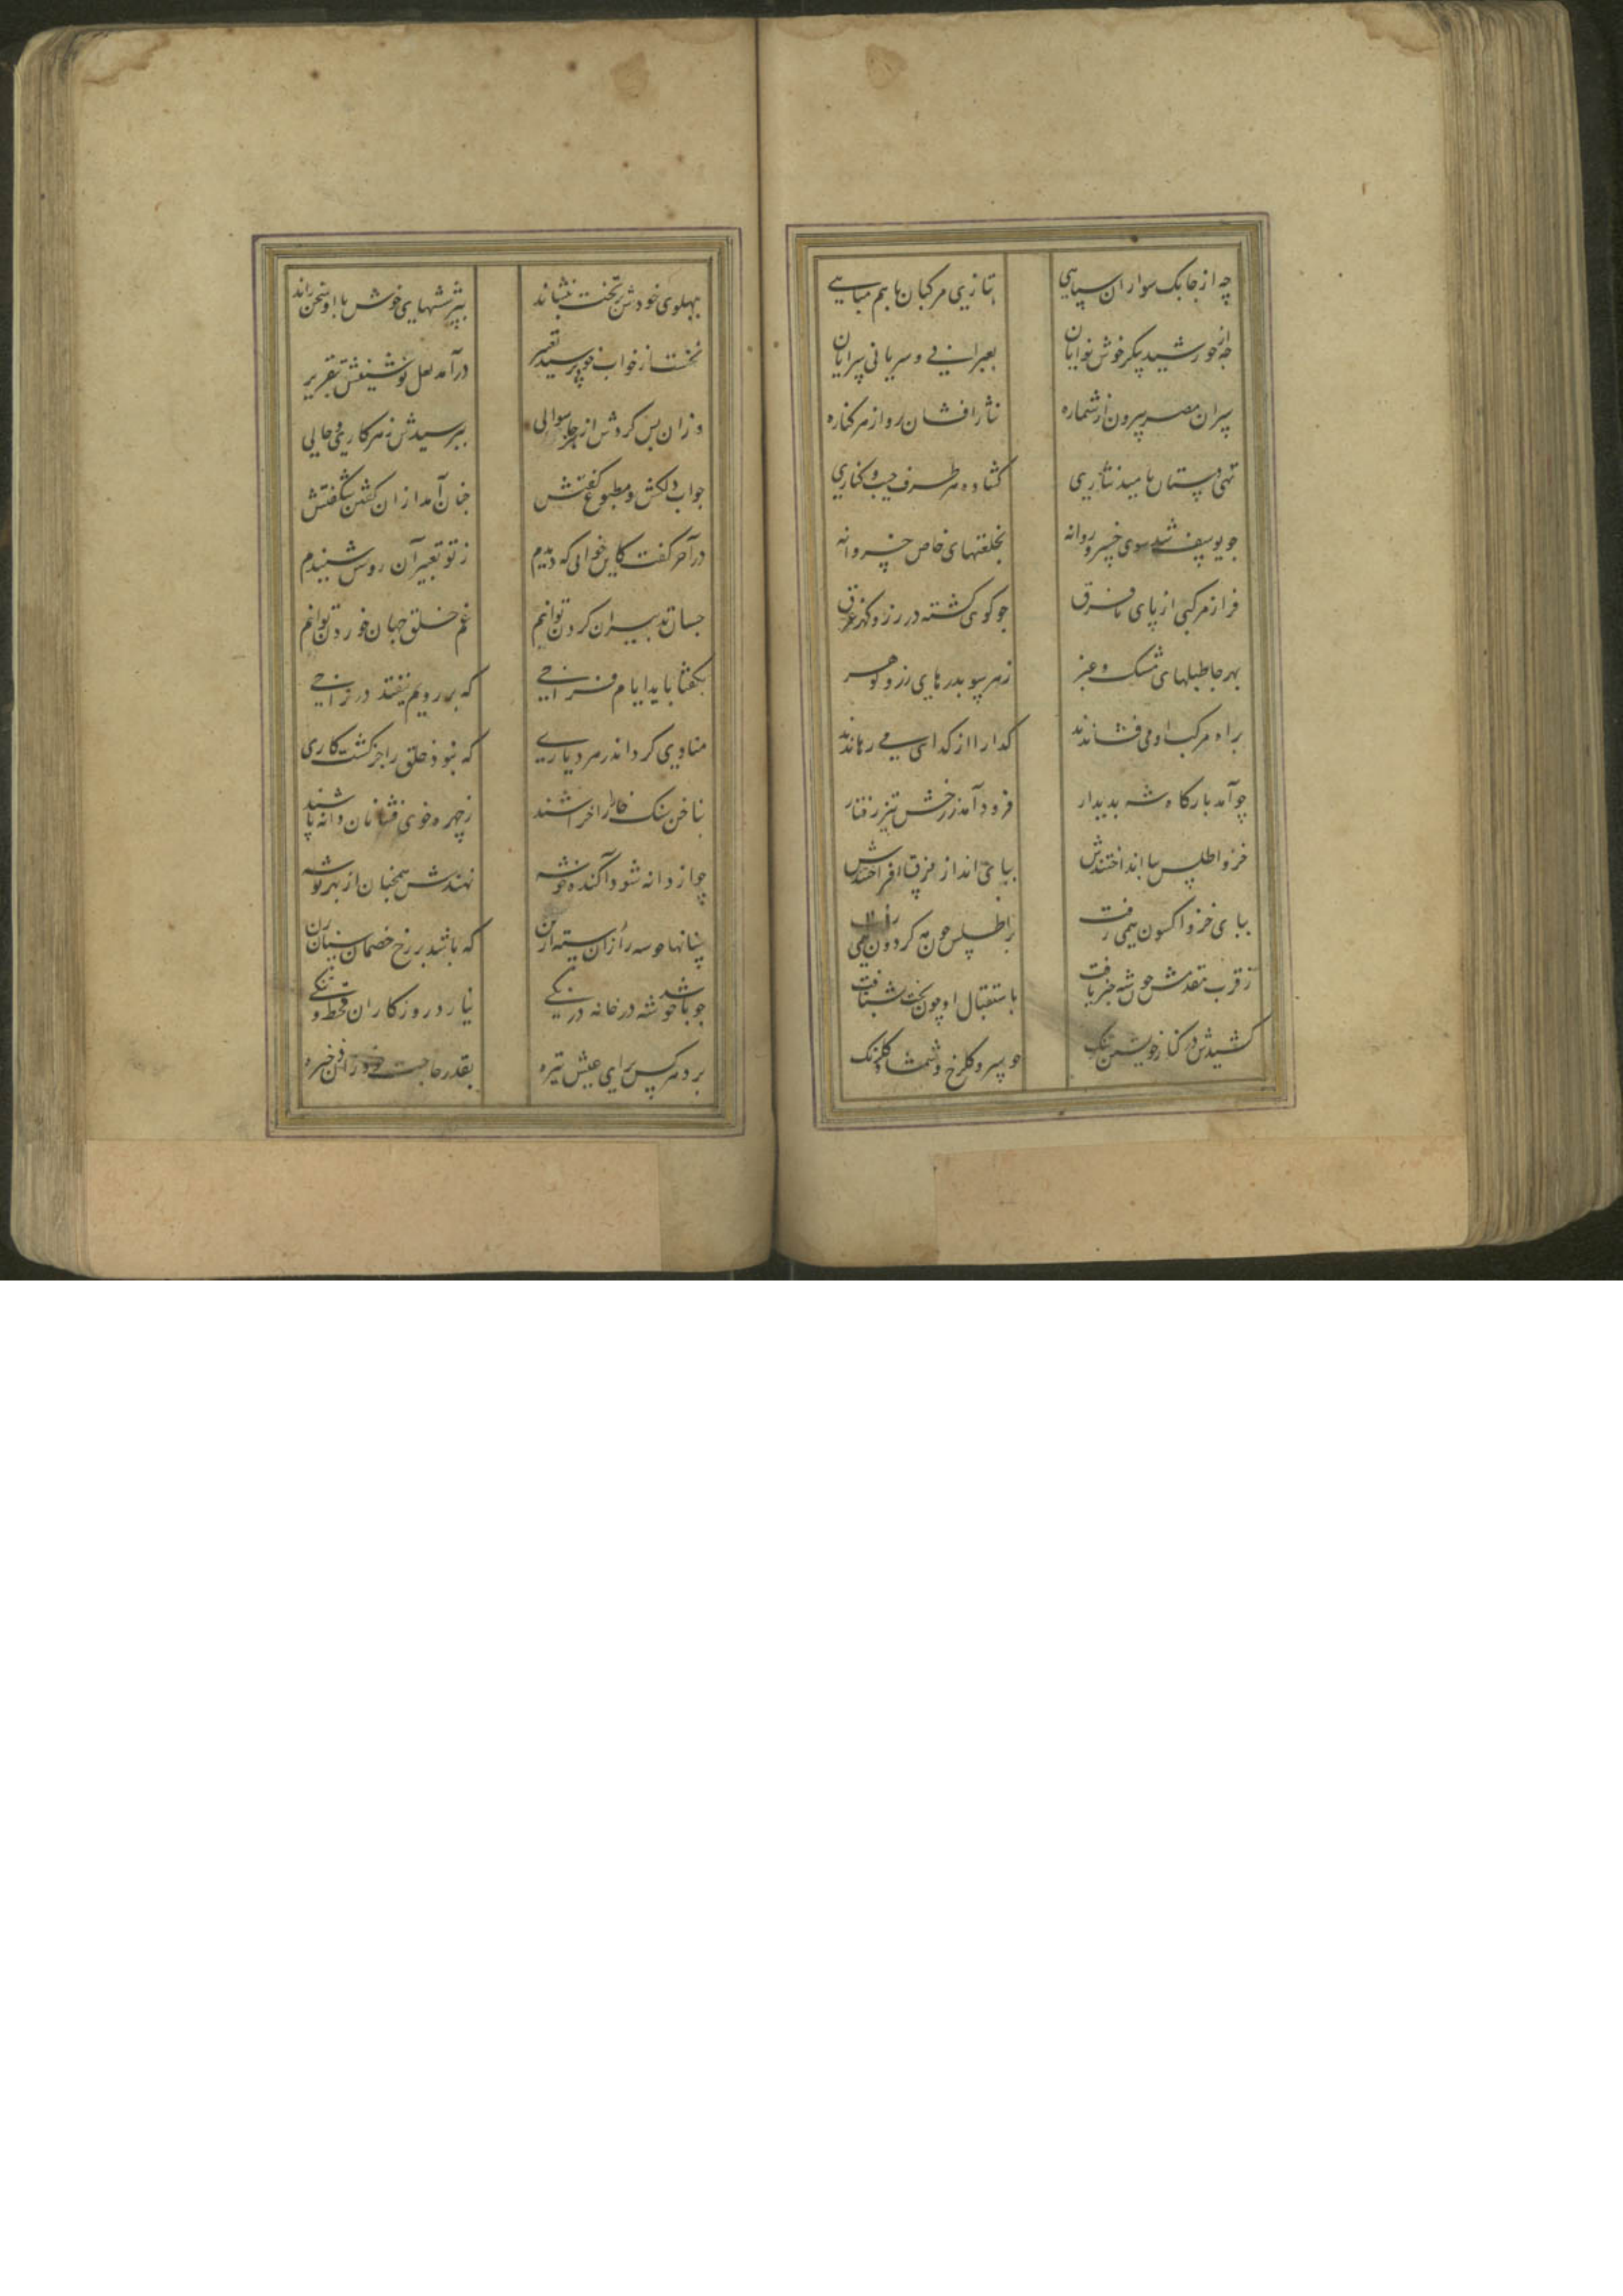 چه از جابک سواران سپاهی
بتازی مرکبان باهم مباهی
چه از خورشید پیکر خوش نوایان
بعبرانی و سریانی سرایان
سران مصر بیرون از شماره
نثار افشان رو از هر کناره
تهی دستان بامید نثاری
کشاده هر طرف جیب و کناری
جو یوسف شد سوی خسرو روانه
بخلعتهای خاص خسروانه
فراز مرکبی از پای تا فرق
جو کوهی کشته در زر و کهر غرق
بهر جا طبلهای مشک و عنبر
زهر سو بدرهای زر و کوهر
براه مرکب او می فشاندند
کدا را از کدایی می رهاندند
جو آمد بارکاه شه بدیدار
فرود آمد ز رخش تیز رفتار
خز و اطلس بپا انداختندش
بپای انداز فرق افراختندش
ببای خز و اکسون همی رفت
بر اطلس جون مه کردون همی رفت
ز قرب مقدمش جون شه خبر یافت
باستقبال او چون بخت بشتافت
کشیدش در کنار خویشتن تنک
جو سرو کلرخ و شمشاد کلرنک
بپهلوی خودش بر تخت بنشاند
بپرسشهای خوش با او سخن راند
نخست از خواب خود پرسید تعبیر
درآمد لعل نوشینش بتقریر
وزان پس کردش از هر جا سوالی
بپرسیدش ز هر کاری و حالی
جواب دلکش و مطبوع کفتش
جنان آمد از ان کفتن شکفتش
در آخر کفت کاین خوابی که دیدم
ز تو تعبیر آن روشن شنیدم
جسان تدبیر آن کردن توانم
غم خلق جهان خوردن توانم
بکفتا باید ایام فراخی
که ابر و نم نیفتد در تراخی
منادی کرد اندر هر دیاری
که نبود خلق را جز کشت کاری
بناخن سنک خارا را خراشند
ز چهره خوی فشانان دانه پاشند
چو از دانه شود آکنده خوشه
نهندش همچنان از بهر توشه
سنانها خوشه را زان رسته از تن
که باشد بر رخ خصمان سنان زن
جو باشد خوشه در خانه درنکی
نیارد روزکاران قحط و تنکی
برد هر کس برای عیش تیره
بقدر حاجت خود زان ذخیره